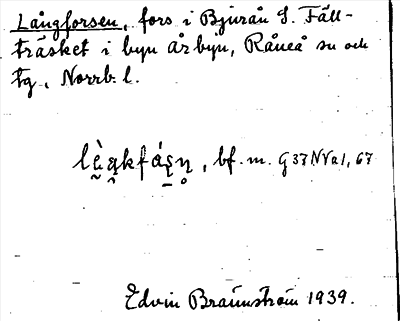 Långforsen, fors i Bjurån S. Fäll-
träsket i byn Årbyn, Råneå sn och
tg, Norrb. l.
bf. m. G37NVa1, 67
Edvin Brännström 1939.